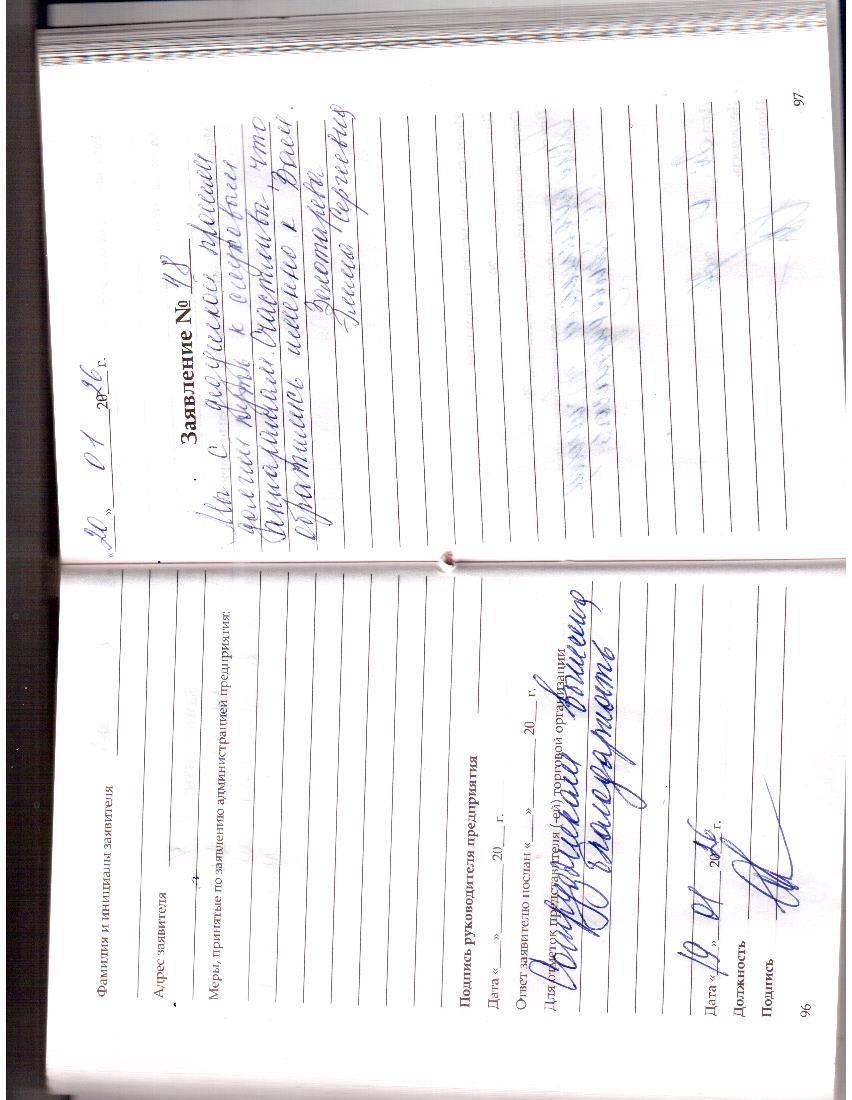 Фамилия и инициалы заявителя
Адрес заявителя
Меры, принятые по заявлению администрацией предприятия:
Подпись руководителя предприятия
Дата «___» ________ 20___ г.
Ответ заявителю послан «___» ________ 20___ г.
Для отметок представителя (-ей) торговой организации
Сотрудникам вынесена
благодарность
Дата «19» 01 2026 г.
Должность
Подпись
96
«20» 01 2026 г.
Заявление № 48
Мы с дедушкой прошли
долгий путь к слуховым
аппаратам. Счастливы, что
обратились именно к Вам.
Золотарева
Сергеевна
97